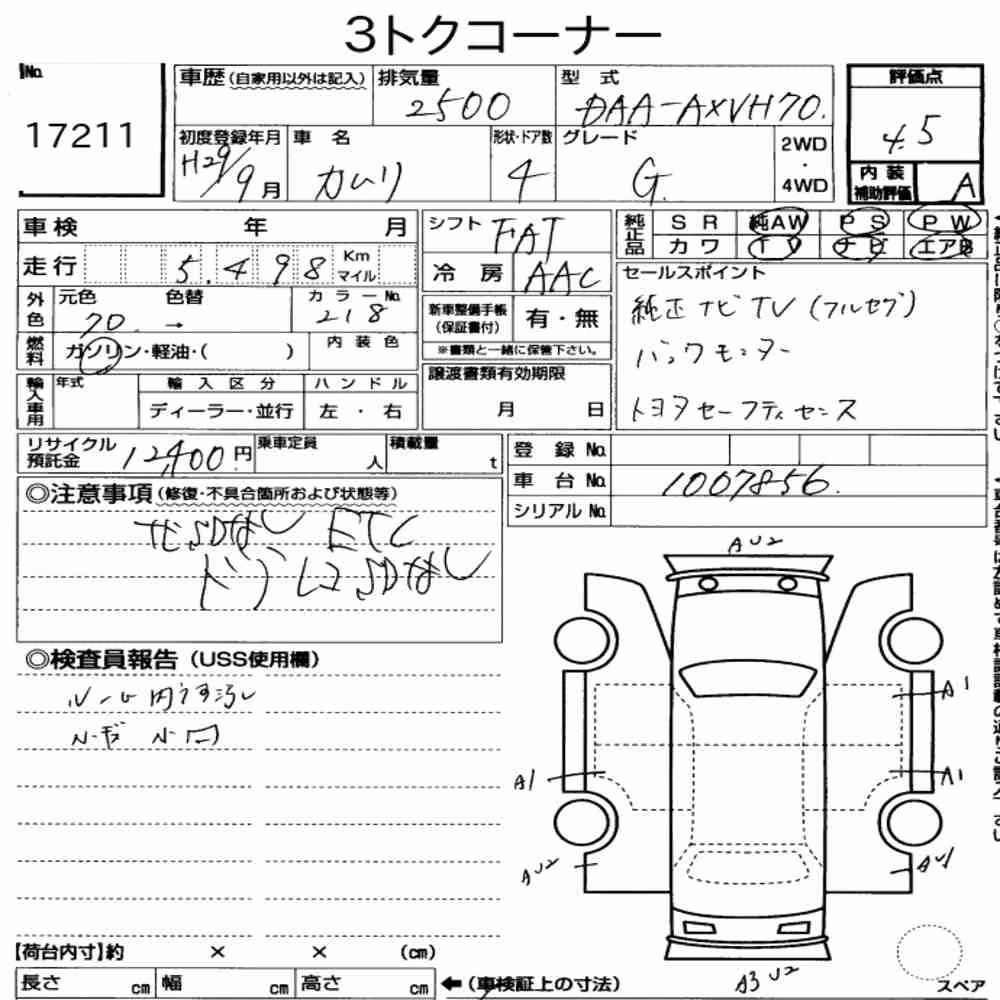 3トクコーナー
No. 17211
車歴(自家用以外は記入)
排気量 2500
型式 DAA-AXVH70.
評価点 4.5
内装補助評価 A
初度登録年月 H29/9月
車名 カムリ
形状・ドア数 4
グレード G.
2WD・4WD
車検 年 月
走行 5.498 Km マイル
シフト FAT
冷房 AAC
純正品 SR 純AW PS PW
カワ TV ナビ エアB
外色 元色 70. → 色替
カラーNo. 218
燃料 ガソリン・軽油・( )
内装色
新車整備手帳(保証書付) 有・無
※書類と一緒に保管下さい。
セールスポイント
純正ナビTV(フルセグ)
バックモニター
トヨタセーフティセンス
輸入車用 年式 輸入区分 ハンドル
ディーラー・並行 左・右
譲渡書類有効期限
月 日
リサイクル預託金 12,400円
乗車定員 人
積載量 t
登録No.
車台No. 1007856.
シリアルNo.
◎注意事項(修復・不具合箇所および状態等)
ナビSDなし ETC
ドラレコSDなし
◎検査員報告(USS使用欄)
AU2
A1
A1
A1
AU2
AU1
A3 U2
スペア
【荷台内寸】約 × × (cm)
長さ cm 幅 cm 高さ cm ←(車検証上の寸法)